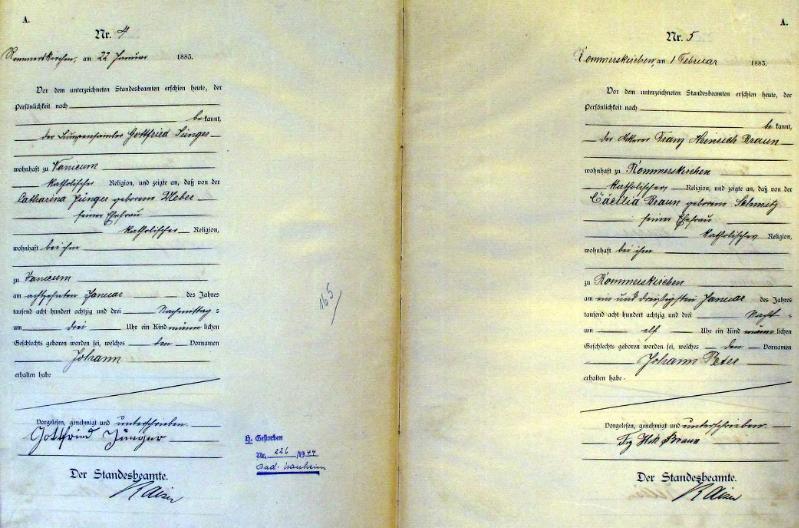 A.
Nr. 4
Rommerskirchen, am 22 Januar 1883.
Vor dem unterzeichneten Standesbeamten erschien heute, der
Persönlichkeit nach
bekannt,
der Gottfried Jünger
wohnhaft zu Vanicum
katholischer Religion, und zeigte an, daß von der
Catharina Jünger geborenen Weber
seiner Ehefrau
katholischer Religion,
wohnhaft bei ihm
zu Vanicum
am achtzehnten Januar des Jahres
tausend acht hundert achtzig und drei Nachmittags
um drei Uhr ein Kind männlichen
Geschlechts geboren worden sei, welches den Vornamen
Johann
erhalten habe
Vorgelesen, genehmigt und unterschrieben
Gottfried Jünger
Der Standesbeamte.
165
H. Gestorben
Nr. 226 /1944
Bad-Nauheim
A.
Nr. 5
Rommerskirchen, am 1 Februar 1883.
Vor dem unterzeichneten Standesbeamten erschien heute, der
Persönlichkeit nach
bekannt,
der Franz Heinrich Braun
wohnhaft zu Rommerskirchen
katholischer Religion, und zeigte an, daß von der
Cäcilia Braun geborenen Schmitz
seiner Ehefrau
katholischer Religion,
wohnhaft bei ihm
zu Rommerskirchen
am ein und dreißigsten Januar des Jahres
tausend acht hundert achtzig und drei
um elf Uhr ein Kind männlichen
Geschlechts geboren worden sei, welches den Vornamen
Johann Peter
erhalten habe
Vorgelesen, genehmigt und unterschrieben
Braun
Der Standesbeamte.